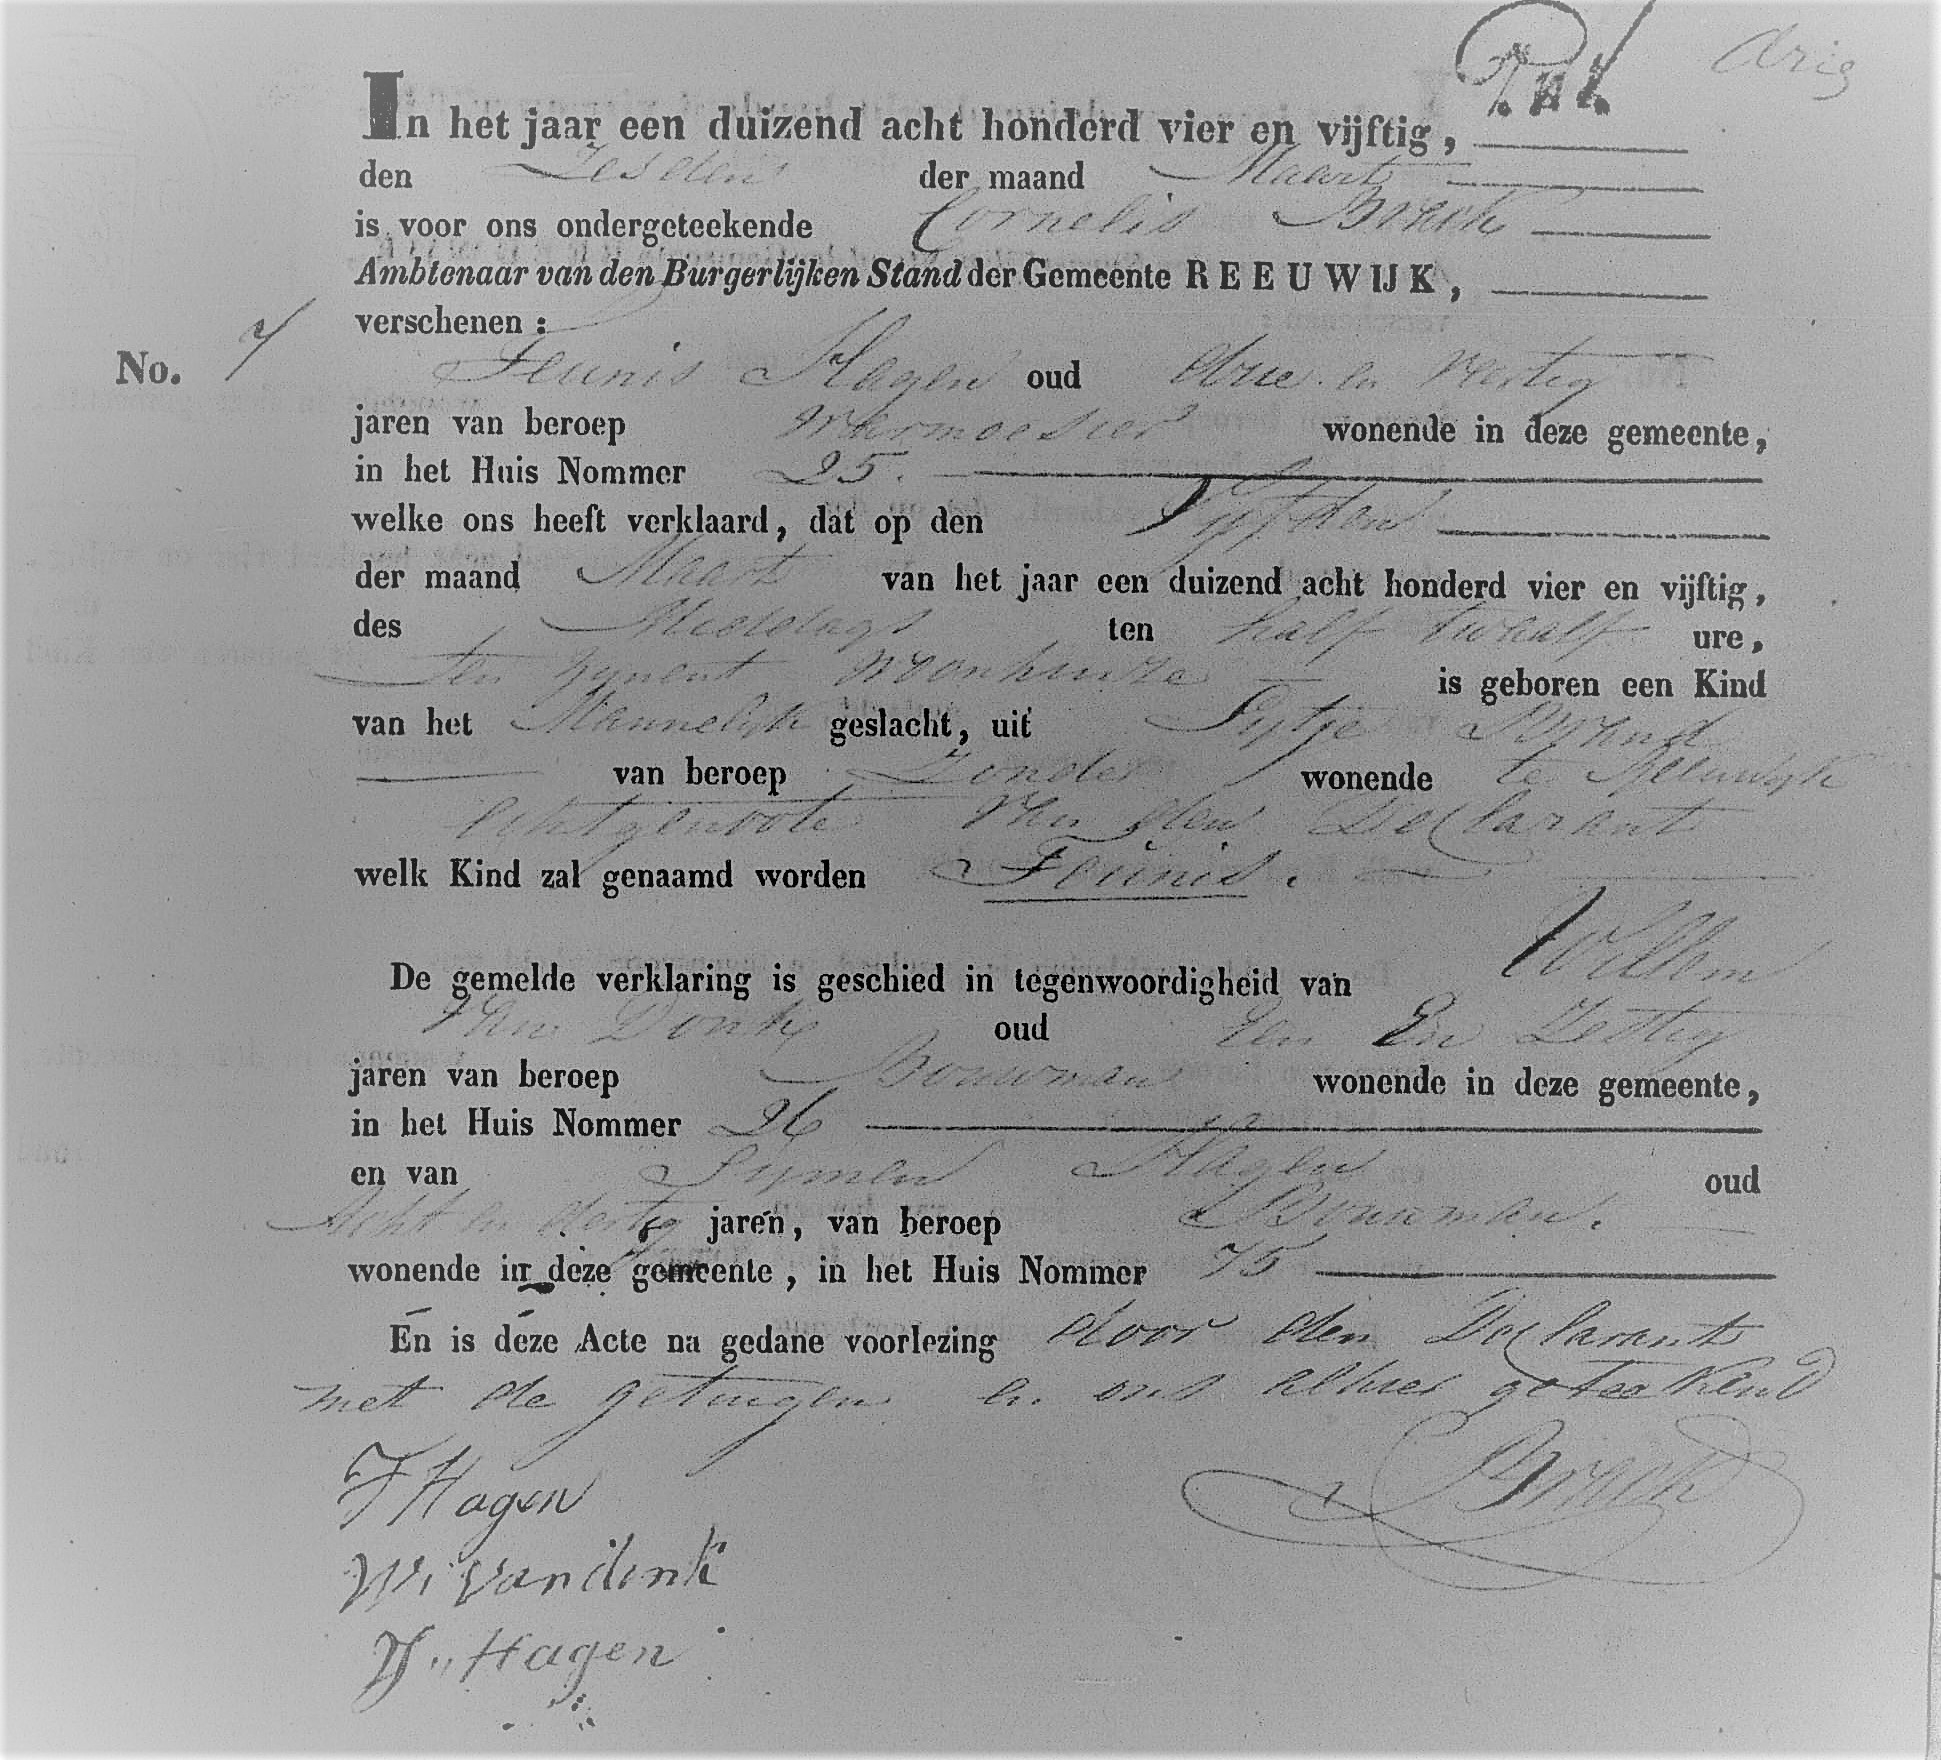 drie
In het jaar een duizend acht honderd vier en vijftig,
den Zesden der maand Maart
is voor ons ondergeteekende Cornelis Brack
Ambtenaar van den Burgerlijken Stand der Gemeente REEUWIJK,
verschenen:
No. 7
Teunis Hagen oud drie en veertig
jaren van beroep warmoesier wonende in deze gemeente,
in het Huis Nommer 25.
welke ons heeft verklaard, dat op den Vijfden
der maand Maart van het jaar een duizend acht honderd vier en vijftig,
des Middags ten half twaalf ure,
ten zynent woonhuize is geboren een Kind
van het Mannelyk geslacht, uit Pytje Brand
van beroep Zonder wonende te Reeuwyk
echtgenoote van den Declarant
welk Kind zal genaamd worden Teunis.
De gemelde verklaring is geschied in tegenwoordigheid van Willem
van Donk oud Een En Zestig
jaren van beroep Bouwman wonende in deze gemeente,
in het Huis Nommer 26
en van Symen Hagen oud
Acht en dertig jaren, van beroep Bouwman.
wonende in deze gemeente, in het Huis Nommer 75
En is deze Acte na gedane voorlezing door den Declarant
met de getuigen en ons alhier geteekend
T Hagen
Brack
W. van donk
S. Hagen